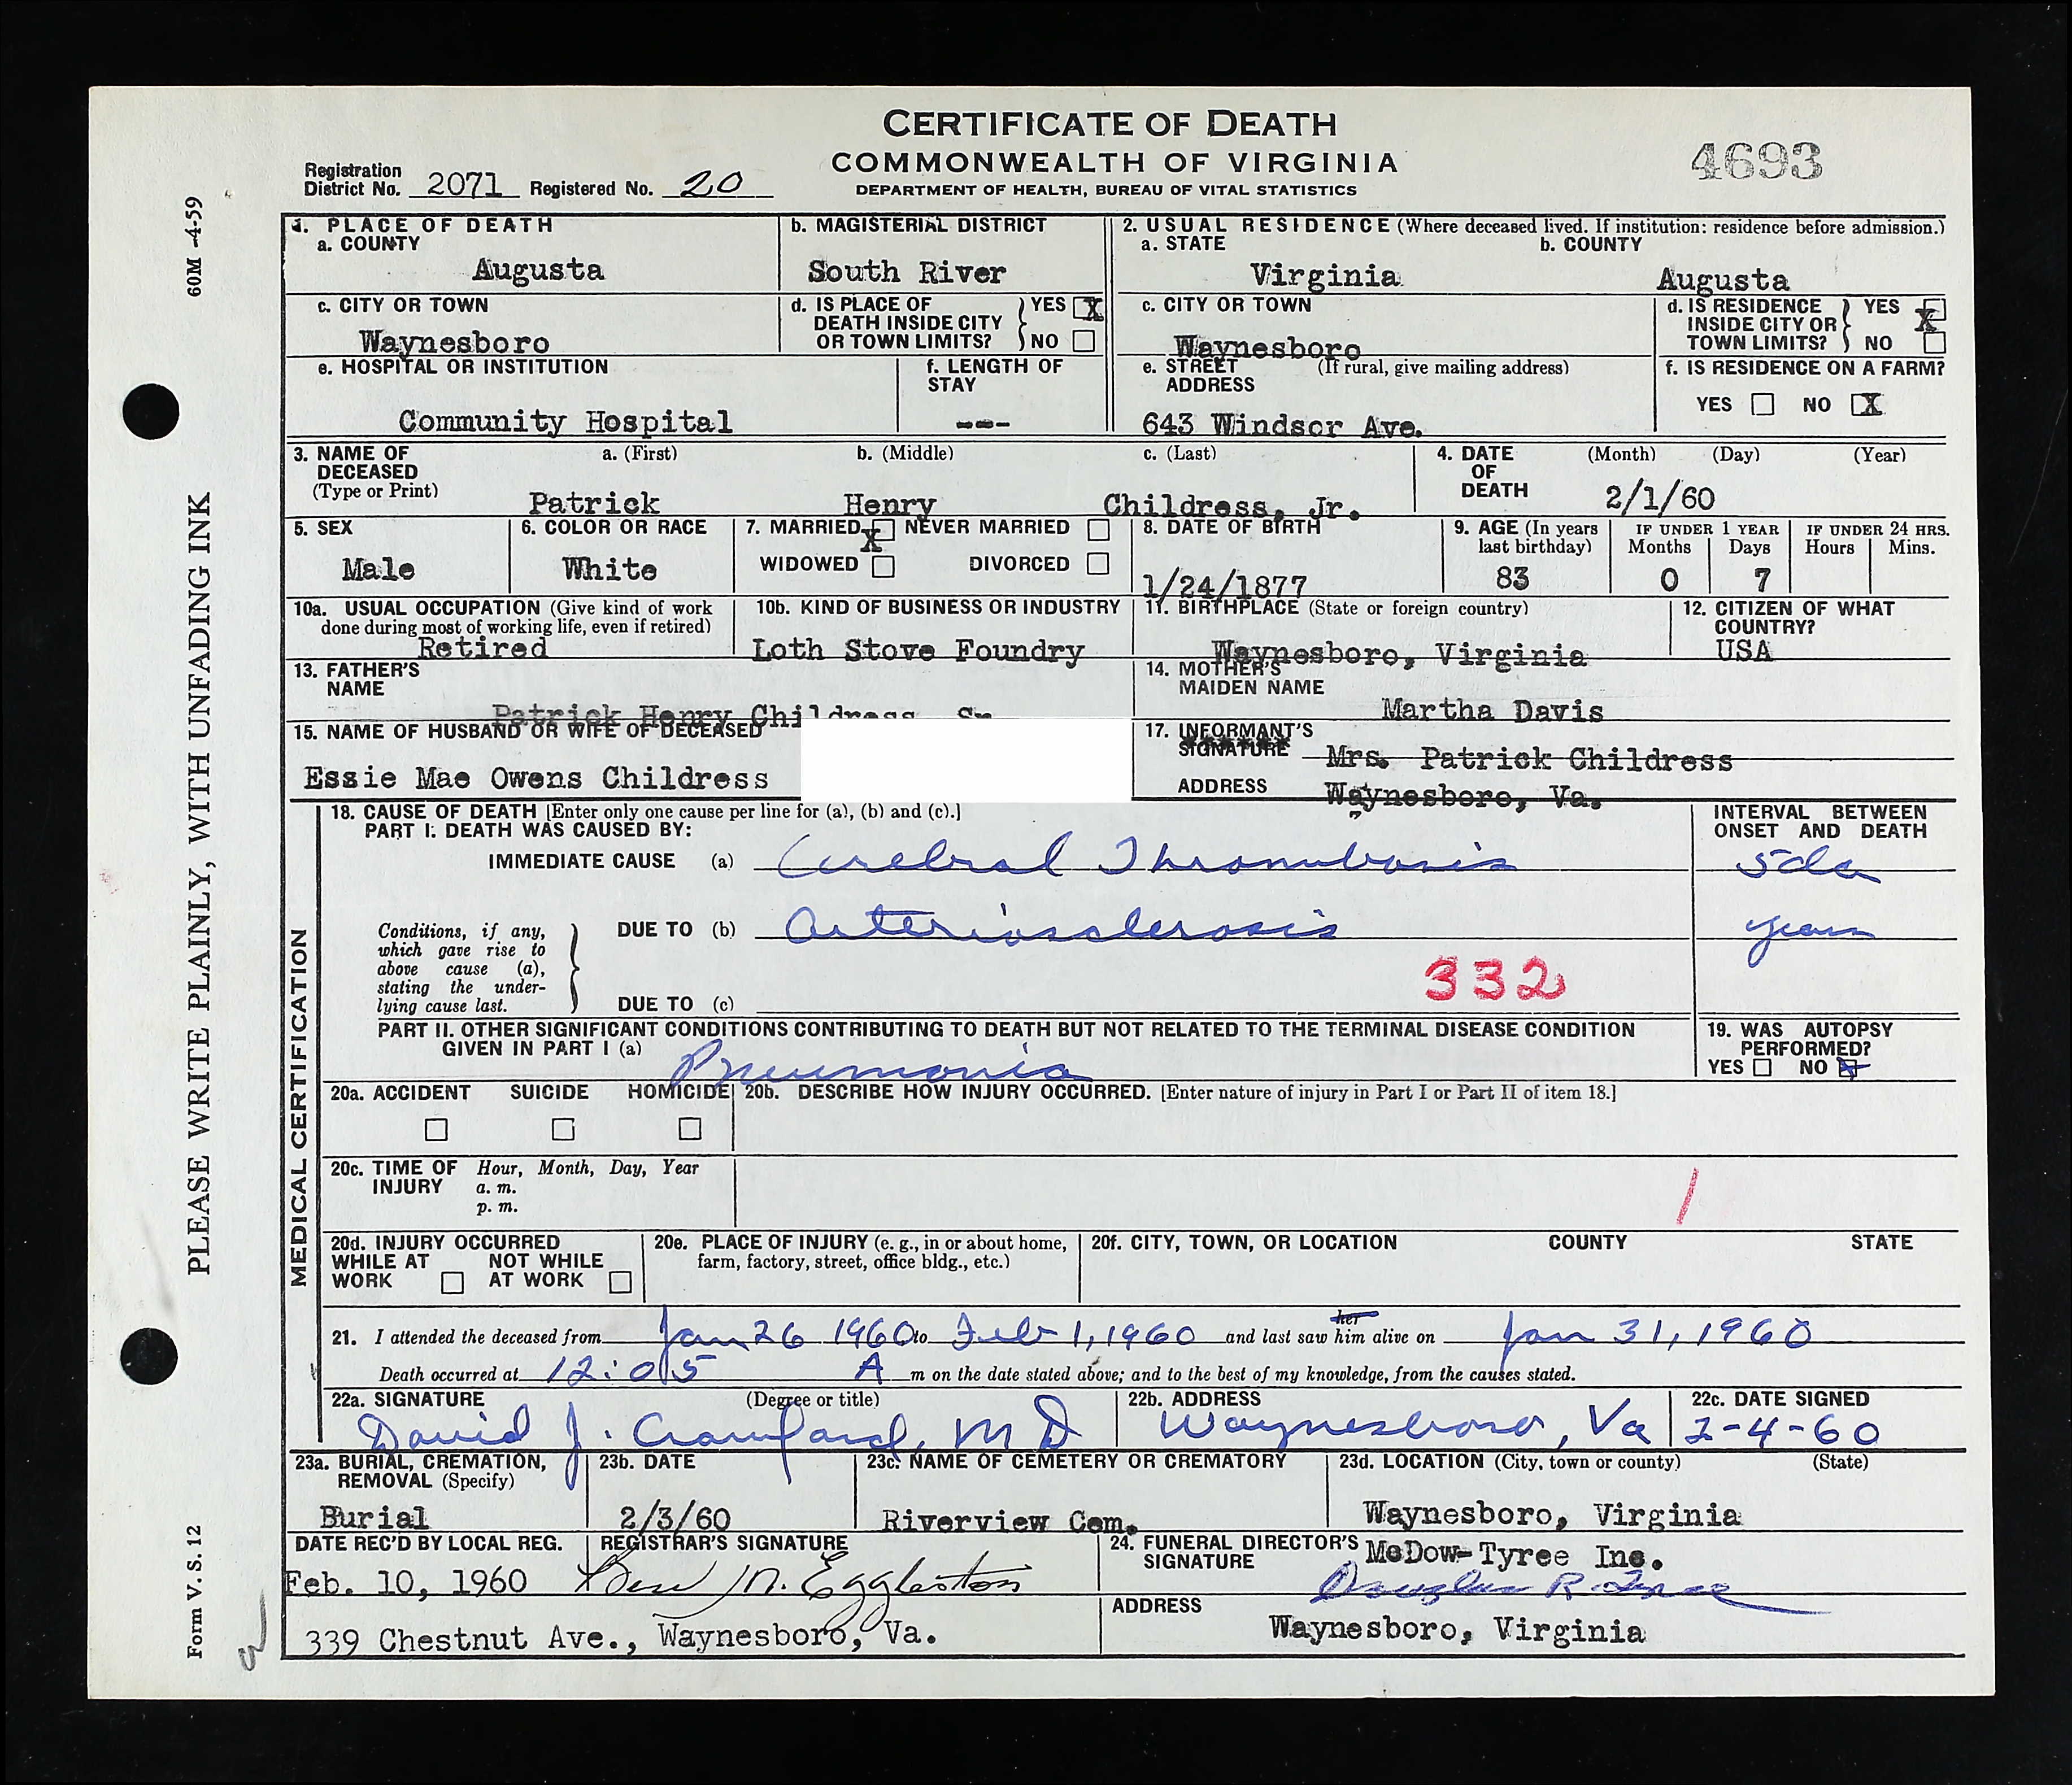 CERTIFICATE OF DEATH
COMMONWEALTH OF VIRGINIA
DEPARTMENT OF HEALTH, BUREAU OF VITAL STATISTICS
4693
Registration District No. 2071 Registered No. 20
60M -4-59
PLEASE WRITE PLAINLY, WITH UNFADING INK
Form V. S. 12
1. PLACE OF DEATH
a. COUNTY
Augusta
b. MAGISTERIAL DISTRICT
South River
2. USUAL RESIDENCE (Where deceased lived. If institution: residence before admission.)
a. STATE
Virginia
b. COUNTY
Augusta
c. CITY OR TOWN
Waynesboro
d. IS PLACE OF DEATH INSIDE CITY OR TOWN LIMITS? YES X NO
c. CITY OR TOWN
Waynesboro
d. IS RESIDENCE INSIDE CITY OR TOWN LIMITS? YES X NO
e. HOSPITAL OR INSTITUTION
Community Hospital
f. LENGTH OF STAY
---
e. STREET ADDRESS (If rural, give mailing address)
643 Windsor Ave.
f. IS RESIDENCE ON A FARM?
YES NO X
3. NAME OF DECEASED (Type or Print)
a. (First) b. (Middle) c. (Last)
Patrick Henry Childress, Jr.
4. DATE OF DEATH (Month) (Day) (Year)
2/1/60
5. SEX
Male
6. COLOR OR RACE
White
7. MARRIED X NEVER MARRIED
WIDOWED DIVORCED
8. DATE OF BIRTH
1/24/1877
9. AGE (In years last birthday)
83
IF UNDER 1 YEAR
Months Days
0 7
IF UNDER 24 HRS.
Hours Mins.
10a. USUAL OCCUPATION (Give kind of work done during most of working life, even if retired)
Retired
10b. KIND OF BUSINESS OR INDUSTRY
Loth Stove Foundry
11. BIRTHPLACE (State or foreign country)
Waynesboro, Virginia
12. CITIZEN OF WHAT COUNTRY?
USA
13. FATHER'S NAME
Patrick Henry Childress Sr
14. MOTHER'S MAIDEN NAME
Martha Davis
15. NAME OF HUSBAND OR WIFE OF DECEASED
Essie Mae Owens Childress
17. INFORMANT'S SIGNATURE
Mrs. Patrick Childress
ADDRESS
Waynesboro, Va.
MEDICAL CERTIFICATION
18. CAUSE OF DEATH [Enter only one cause per line for (a), (b) and (c).]
PART I. DEATH WAS CAUSED BY:
INTERVAL BETWEEN ONSET AND DEATH
IMMEDIATE CAUSE (a) Cerebral Thrombosis 5 da
Conditions, if any, which gave rise to above cause (a), stating the underlying cause last.
DUE TO (b) Arteriosclerosis years
332
DUE TO (c)
PART II. OTHER SIGNIFICANT CONDITIONS CONTRIBUTING TO DEATH BUT NOT RELATED TO THE TERMINAL DISEASE CONDITION GIVEN IN PART I (a)
Pneumonia
19. WAS AUTOPSY PERFORMED?
YES NO X
20a. ACCIDENT SUICIDE HOMICIDE
20b. DESCRIBE HOW INJURY OCCURRED. [Enter nature of injury in Part I or Part II of item 18.]
20c. TIME OF INJURY Hour, Month, Day, Year
a. m.
p. m.
20d. INJURY OCCURRED
WHILE AT WORK NOT WHILE AT WORK
20e. PLACE OF INJURY (e. g., in or about home, farm, factory, street, office bldg., etc.)
20f. CITY, TOWN, OR LOCATION COUNTY STATE
21. I attended the deceased from Jan 26 1960 to Feb 1, 1960 and last saw her him alive on Jan 31, 1960
Death occurred at 12:05 A m on the date stated above; and to the best of my knowledge, from the causes stated.
22a. SIGNATURE (Degree or title)
David J. Crawford, MD
22b. ADDRESS
Waynesboro, Va
22c. DATE SIGNED
2-4-60
23a. BURIAL, CREMATION, REMOVAL (Specify)
Burial
23b. DATE
2/3/60
23c. NAME OF CEMETERY OR CREMATORY
Riverview Cem.
23d. LOCATION (City, town or county) (State)
Waynesboro, Virginia
DATE REC'D BY LOCAL REG.
Feb. 10, 1960
REGISTRAR'S SIGNATURE
M. Eggleston
24. FUNERAL DIRECTOR'S SIGNATURE
McDow-Tyree Inc.
Douglas R. Tyree
339 Chestnut Ave., Waynesboro, Va.
ADDRESS
Waynesboro, Virginia